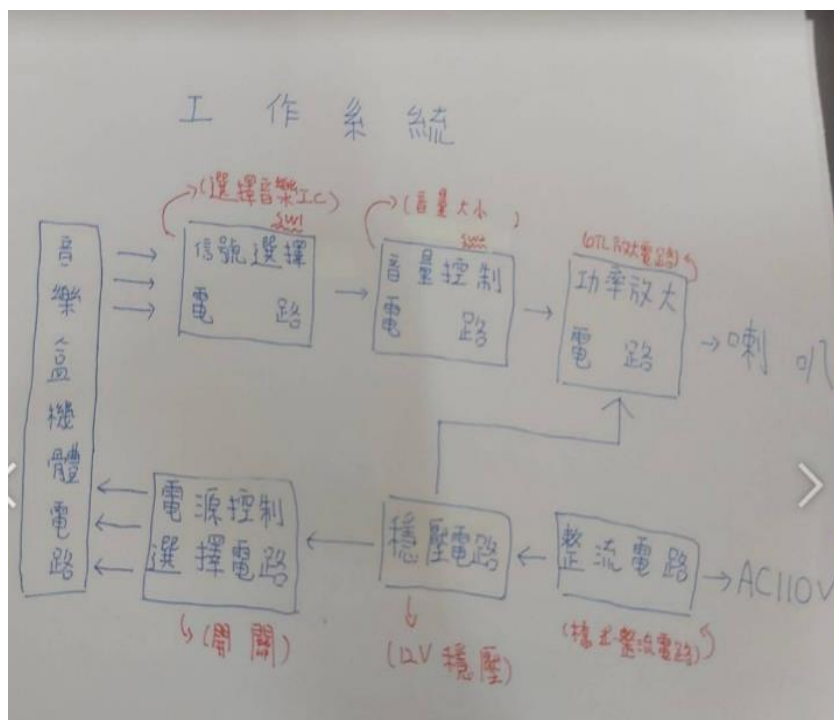 工作系統
(選擇音樂IC)
SW1
(音量大小)
SW2
(OTL放大電路)
音樂盒機體電路
信號選擇
電路
音量控制
電路
功率放大
電路
喇叭
電源控制
選擇電路
穩壓電路
整流電路
AC110V
(開關)
(12V穩壓)
(橋式整流電路)